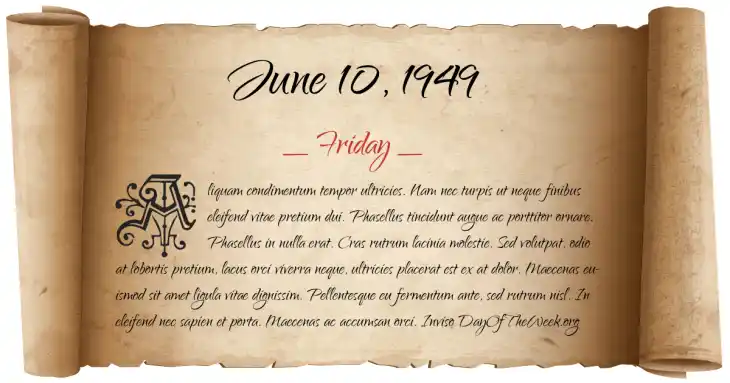 June 10, 1949
_ Friday _
Aliquam condimentum tempor ultricies. Nam nec turpis ut neque finibus
eleifend vitae pretium dui. Phasellus tincidunt augue ac porttitor ornare.
Phasellus in nulla erat. Cras rutrum lacinia molestie. Sed volutpat, odio
at lobortis pretium, lacus orci viverra neque, ultricies placerat est ex at dolor. Maecenas eu-
ismod sit amet ligula vitae dignissim. Pellentesque eu fermentum ante, sed rutrum nisl. In
eleifend nec sapien et porta. Maecenas ac accumsan orci. Inviso DayOfTheWeek.org